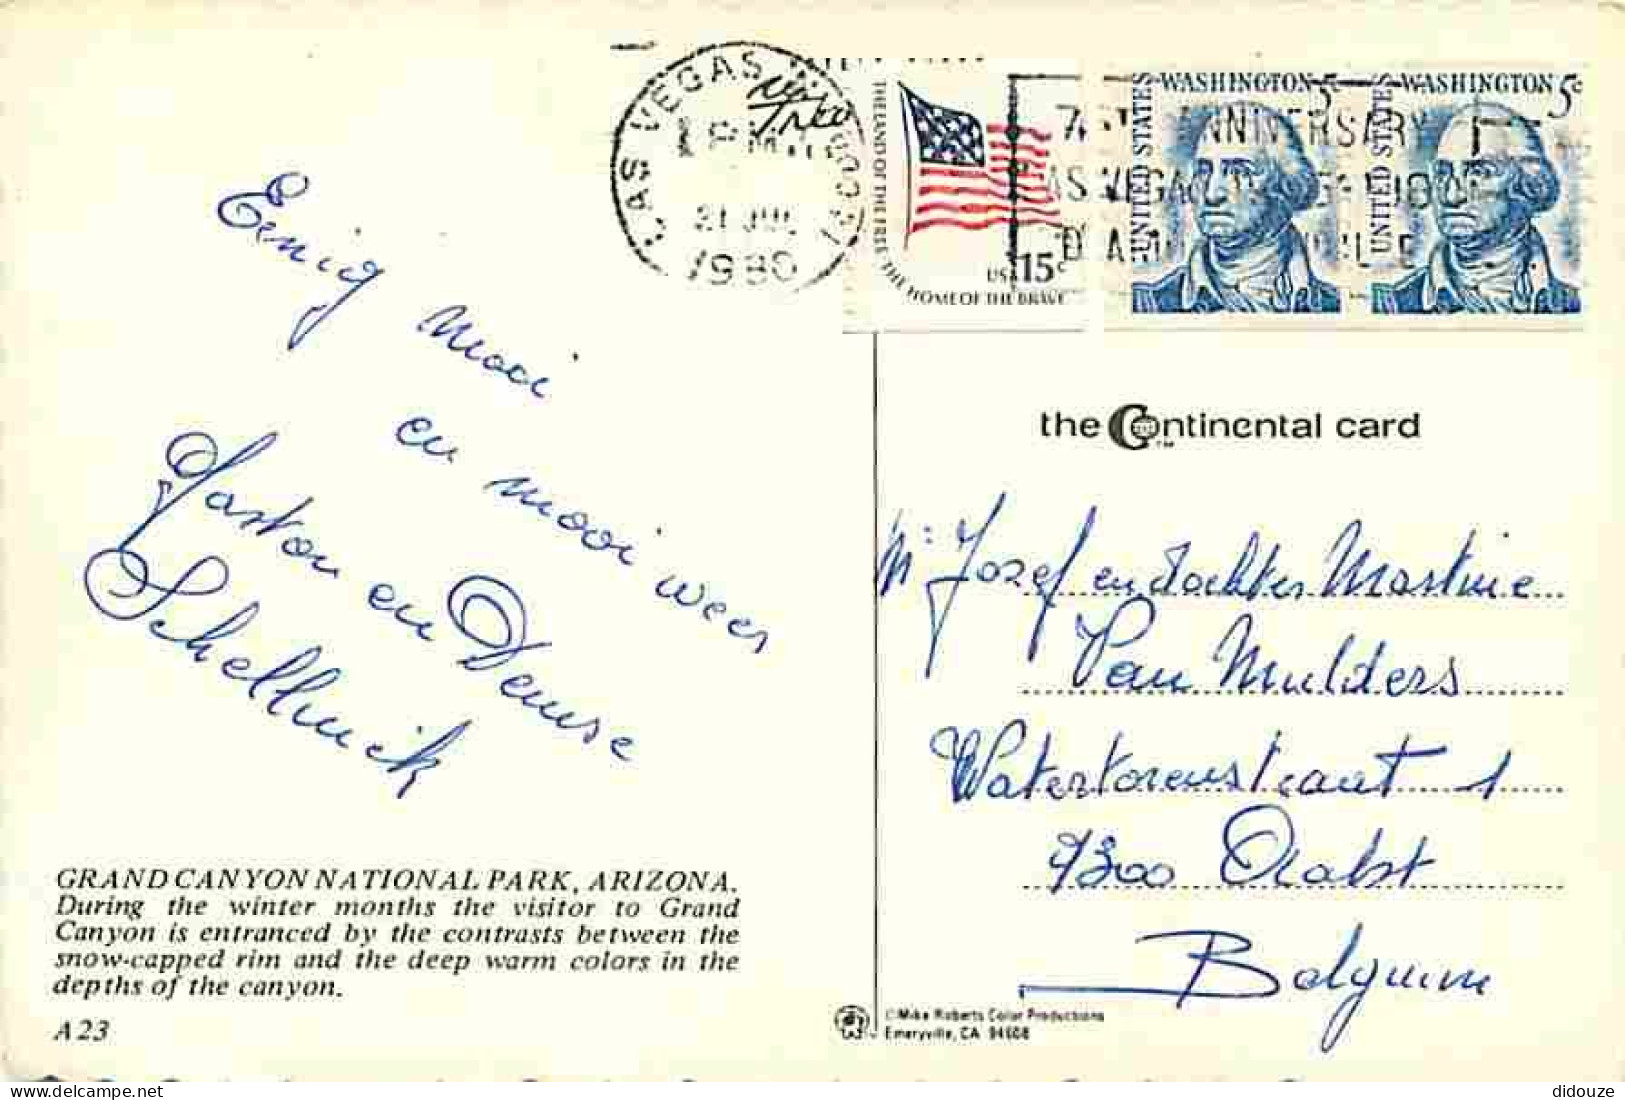 LAS VEGAS
PM
21 JUL
1980
THE LAND OF THE FREE THE HOME OF THE BRAVE
USA 15c
75TH ANNIVERSARY
UNITED STATES
WASHINGTON 5c
UNITED STATES
WASHINGTON 5c
Enig mooi
en mooi weer
Gaston en Denise
Schellinck
GRAND CANYON NATIONAL PARK, ARIZONA.
During the winter months the visitor to Grand
Canyon is entranced by the contrasts between the
snow-capped rim and the deep warm colors in the
depths of the canyon.
A23
the Continental card
TM
Mr Jozef en dochter Martine
Van Mulders
Watertorenstraat 1
9300 Aalst
Belgium
©Mike Roberts Color Productions
Emeryville, CA 94608
didouze